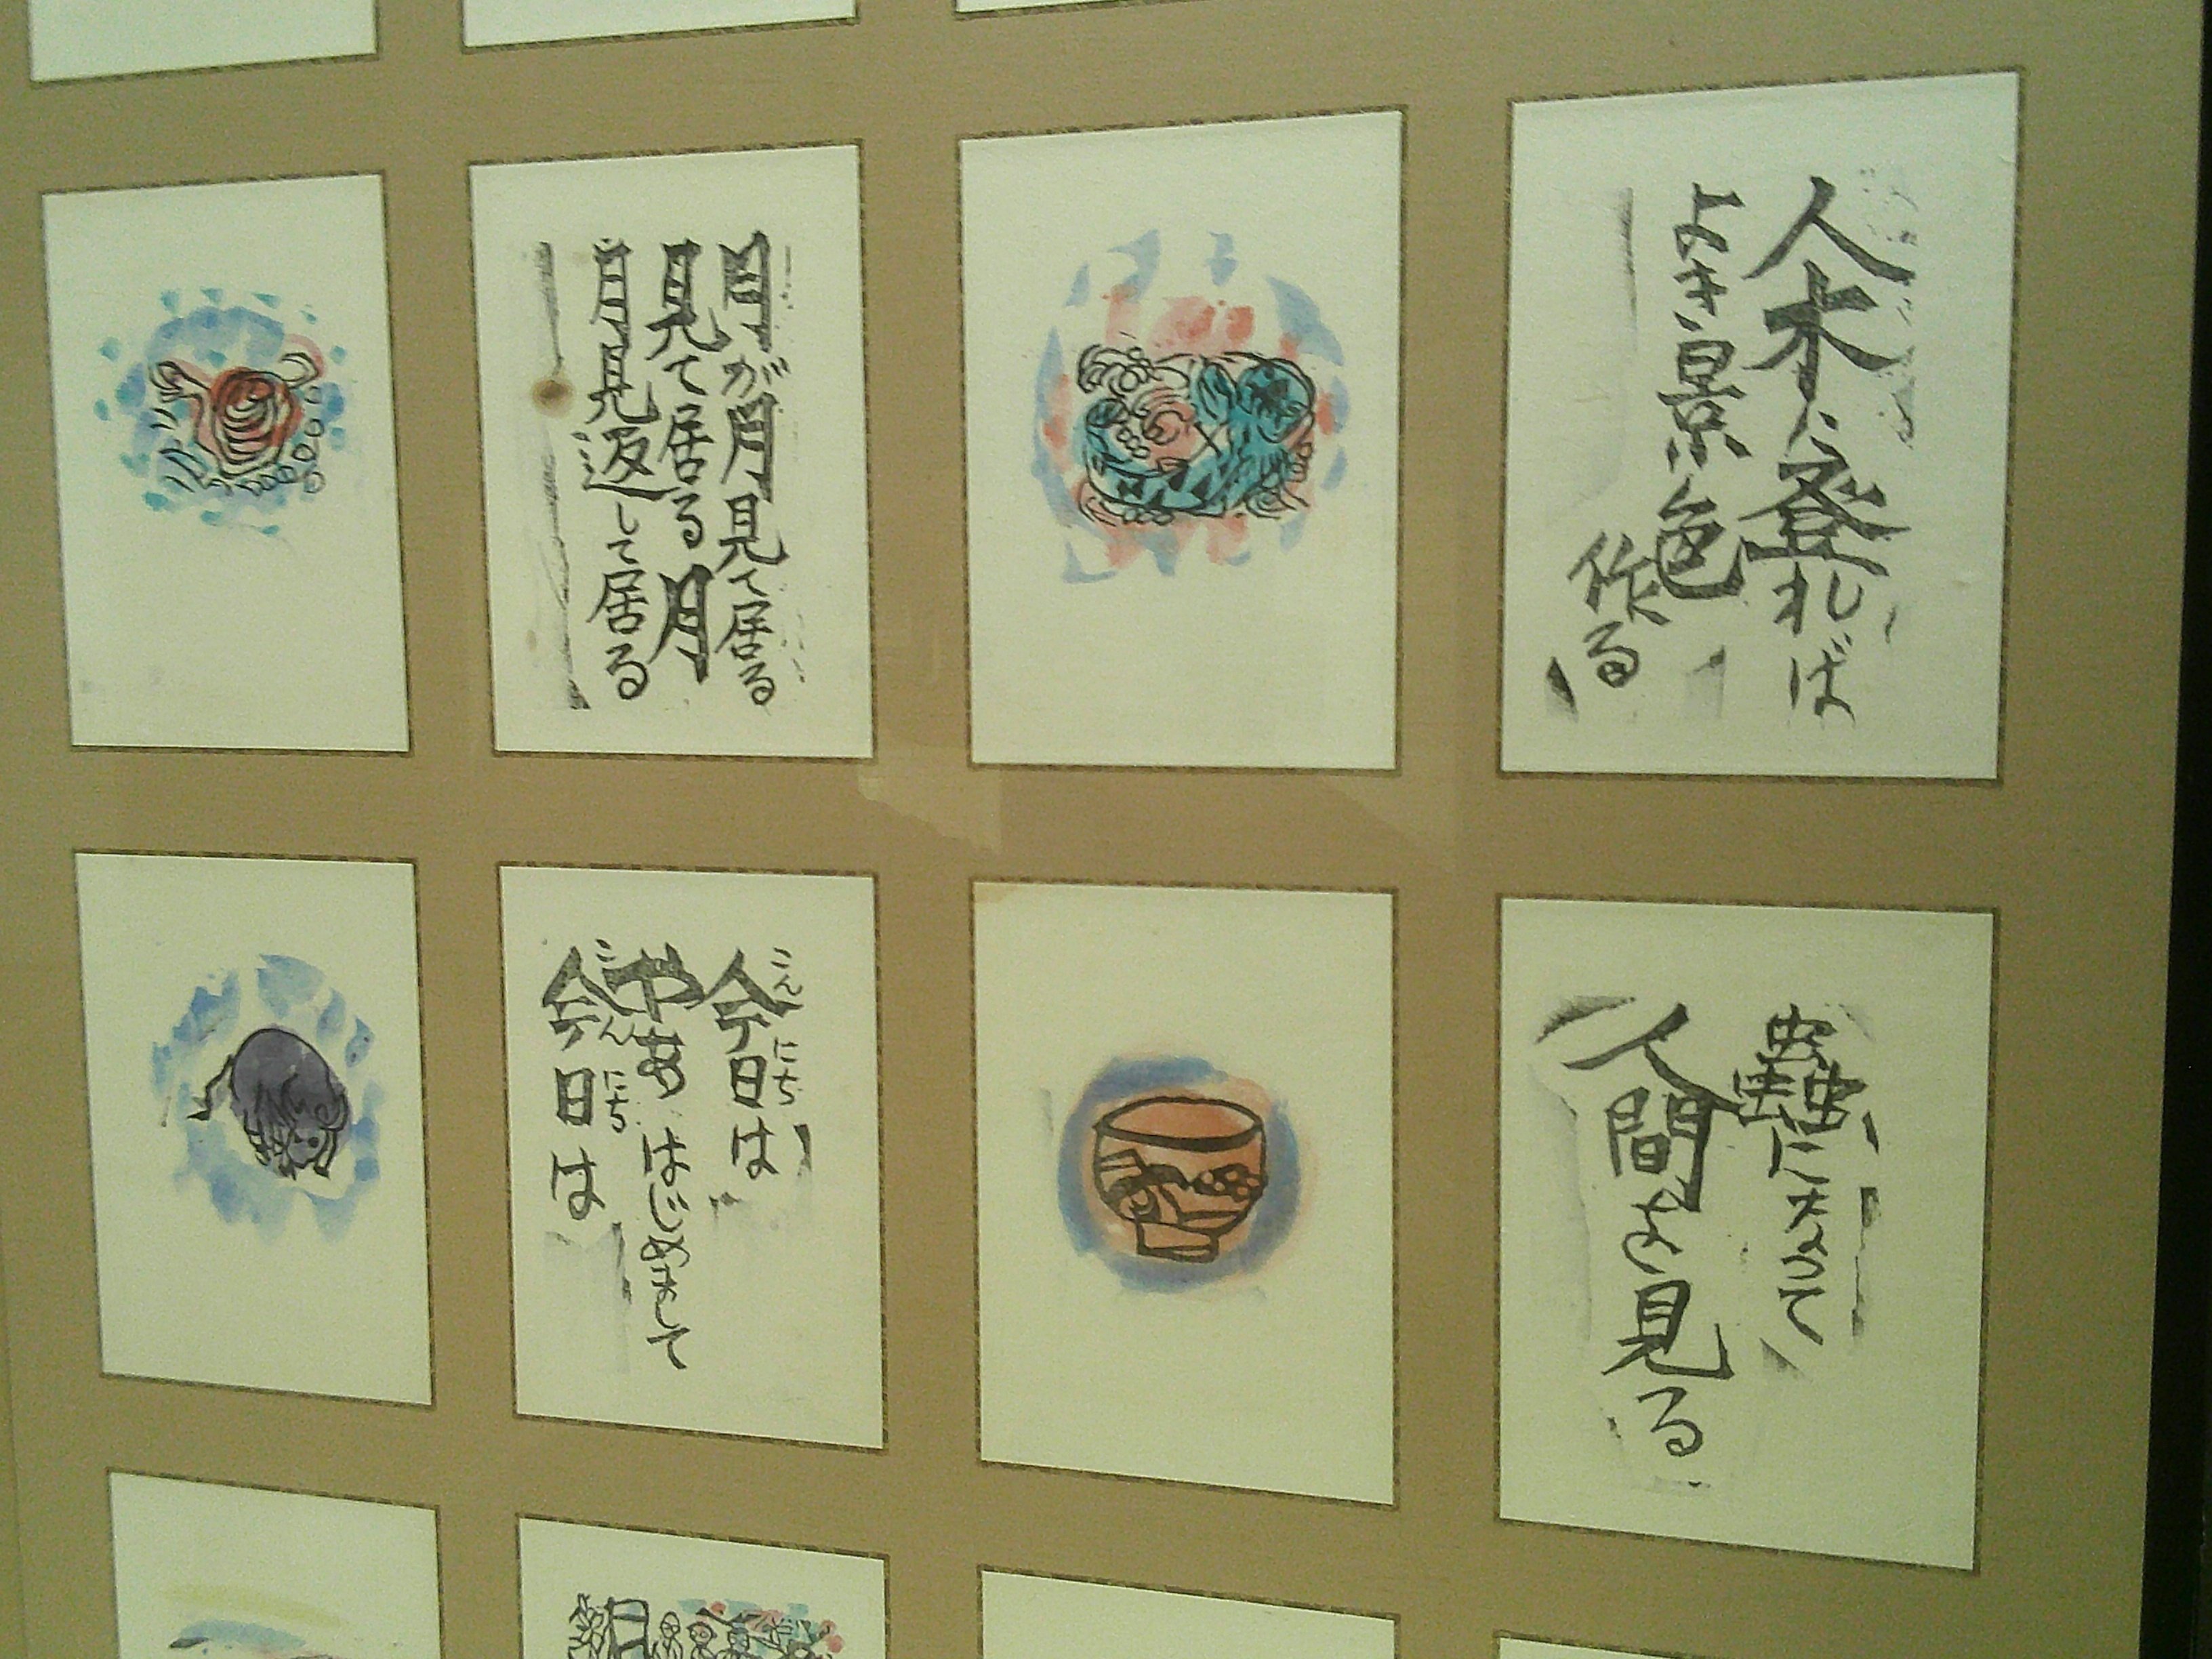 人木に登れば
よき景色
作る
月が月見て居る
見て居る月
月見返して居る
蟲になって
人間を見る
今日は
こんにち
やあはじめまして
今日は
こんにち
朝